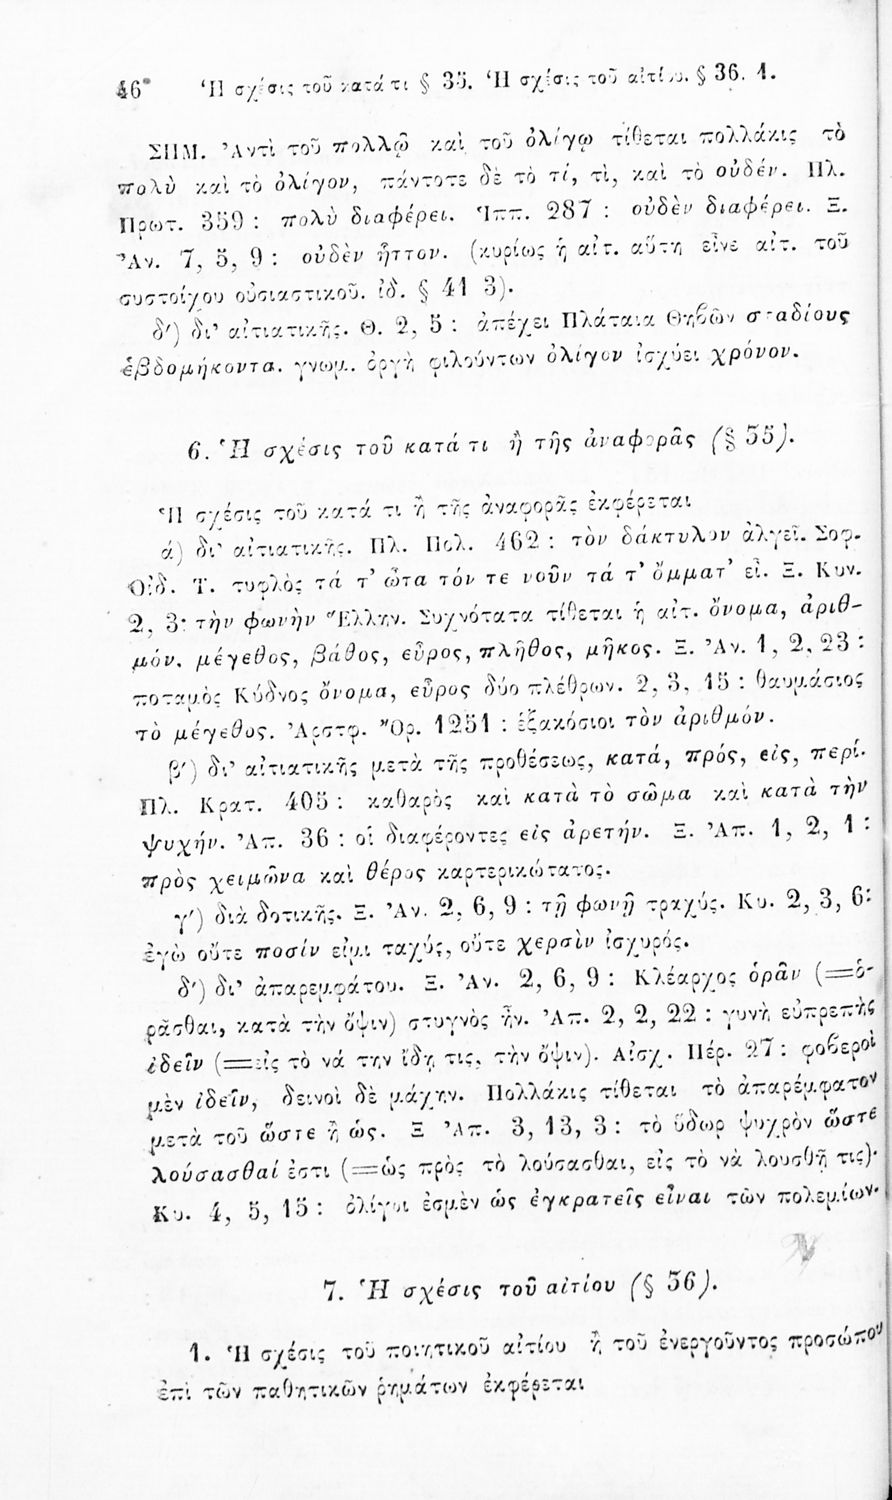 46 Ἡ σχέσις τοῦ κατά τι § 35. Ἡ σχέσις τοῦ αἰτίου. § 36. 1.
ΣΗΜ. Ἀντὶ τοῦ πολλῷ καὶ τοῦ ὀλίγῳ τίθεται πολλάκις τὸ
πολὺ καὶ τὸ ὀλίγον, πάντοτε δὲ τὸ τί, τὶ, καὶ τὸ οὐδέν. Πλ.
Πρωτ. 359 : πολὺ διαφέρει. Ἱππ. 287 : οὐδὲν διαφέρει. Ξ.
Ἀν. 7, 5, 9 : οὐδὲν ἧττον. (κυρίως ἡ αἰτ. αὕτη εἶνε αἰτ. τοῦ
συστοίχου οὐσιαστικοῦ. ἰδ. § 41 3).
δ') δι' αἰτιατικῆς. Θ. 2, 5 : ἀπέχει Πλάταια Θηβῶν σταδίους
ἑβδομήκοντα. γνωμ. ὀργὴ φιλούντων ὀλίγον ἰσχύει χρόνον.
6. Ἡ σχέσις τοῦ κατά τι ἢ τῆς ἀναφορᾶς (§ 35).
Ἡ σχέσις τοῦ κατά τι ἢ τῆς ἀναφορᾶς ἐκφέρεται
ά) δι' αἰτιατικῆς. Πλ. Πολ. 462 : τὸν δάκτυλον ἀλγεῖ. Σοφ.
Οἰδ. Τ. τυφλὸς τά τ' ὦτα τόν τε νοῦν τά τ' ὄμματ' εἶ. Ξ. Κυν.
2, 3: τὴν φωνὴν Ἕλλην. Συχνότατα τίθεται ἡ αἰτ. ὄνομα, ἀριθ-
μόν. μέγεθος, βάθος, εὖρος, πλῆθος, μῆκος. Ξ. Ἀν. 1, 2, 23 :
ποταμὸς Κύδνος ὄνομα, εὖρος δύο πλέθρων. 2, 3, 15 : θαυμάσιος
τὸ μέγεθος. Ἀρστφ. Ὄρ. 1251 : ἑξακόσιοι τὸν ἀριθμόν.
β') δι' αἰτιατικῆς μετὰ τῆς προθέσεως, κατά, πρός, εἰς, περί.
Πλ. Κρατ. 405 : καθαρὸς καὶ κατὰ τὸ σῶμα καὶ κατὰ τὴν
ψυχήν. Ἀπ. 36 : οἱ διαφέροντες εἰς ἀρετήν. Ξ. Ἀπ. 1, 2, 1 :
πρὸς χειμῶνα καὶ θέρος καρτερικώτατος.
γ') διὰ δοτικῆς. Ξ. Ἀν. 2, 6, 9 : τῇ φωνῇ τραχύς. Κυ. 2, 3, 6:
ἐγὼ οὔτε ποσίν εἰμι ταχύς, οὔτε χερσὶν ἰσχυρός.
δ') δι' ἀπαρεμφάτου. Ξ. Ἀν. 2, 6, 9 : Κλέαρχος ὁρᾶν (=ὁ-
ρᾶσθαι, κατὰ τὴν ὄψιν) στυγνὸς ἦν. Ἀπ. 2, 2, 22 : γυνὴ εὐπρεπὴς
ἰδεῖν (=εἰς τὸ νά την ἴδῃ τις, τὴν ὄψιν). Αἰσχ. Πέρ. 27 : φοβεροὶ
μὲν ἰδεῖν, δεινοὶ δὲ μάχην. Πολλάκις τίθεται τὸ ἀπαρέμφατον
μετὰ τοῦ ὥστε ἢ ὡς. Ξ Ἀπ. 3, 13, 3 : τὸ ὕδωρ ψυχρὸν ὥστε
λούσασθαί ἐστι (=ὡς πρὸς τὸ λούσασθαι, εἰς τὸ νὰ λουσθῇ τις).
Κυ. 4, 5, 15 : ὀλίγοι ἐσμὲν ὡς ἐγκρατεῖς εἶναι τῶν πολεμίων.
7. Ἡ σχέσις τοῦ αἰτίου (§ 36).
1. Ἡ σχέσις τοῦ ποιητικοῦ αἰτίου ἢ τοῦ ἐνεργοῦντος προσώπου
ἐπὶ τῶν παθητικῶν ῥημάτων ἐκφέρεται